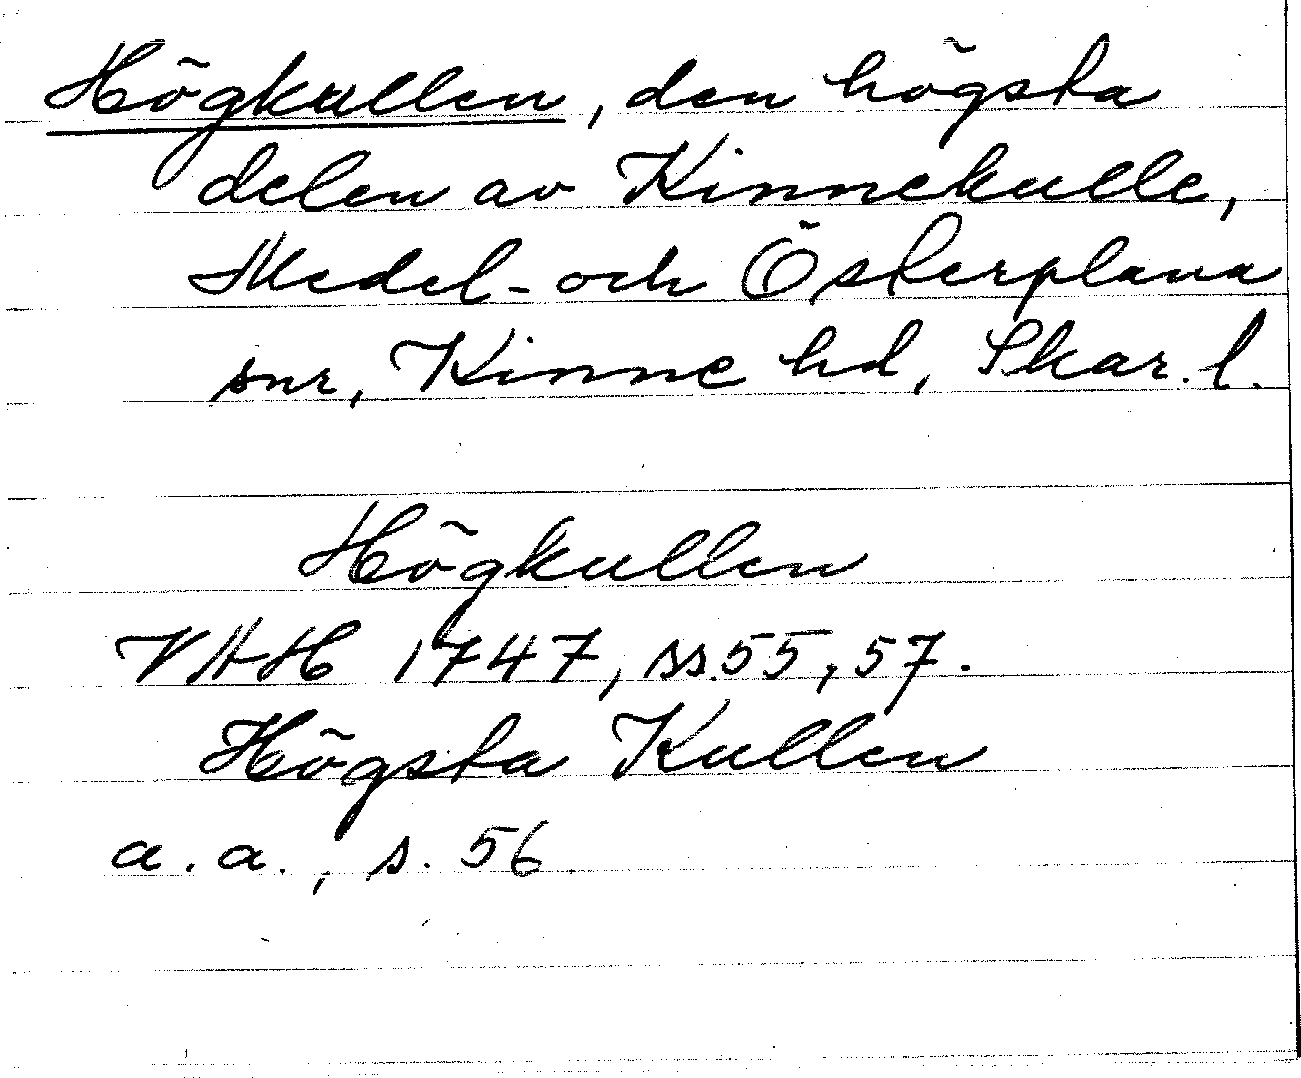 Högkullen, den högsta
delen av Kinnekulle,
Medel- och Österplana
snr, Kinne hd, Skar. l.
Högkullen
VAH 1747, ss. 55, 57.
Högsta Kullen
a. a., s. 56